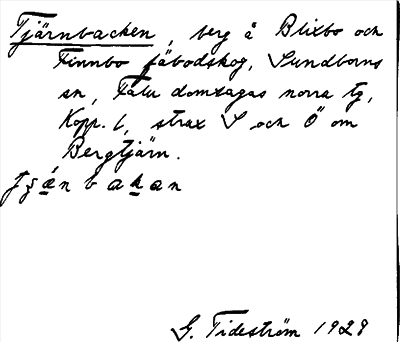 Tjärnbacken, berg å Blixbo och
Finnbo fäbodskog, Sundborns
sn, Falu domsagas norra tg,
Kopp. l, strax S och Ö om
Bergtjärn.
G. Tideström 1928